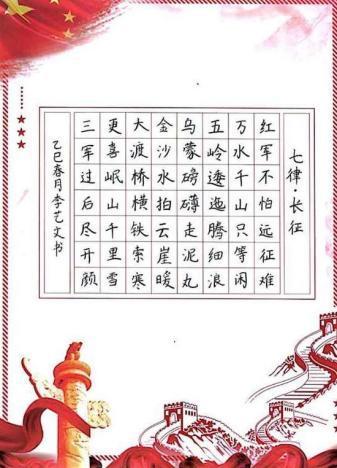 七律·长征
红军不怕远征难
万水千山只等闲
五岭逶迤腾细浪
乌蒙磅礴走泥丸
金沙水拍云崖暖
大渡桥横铁索寒
更喜岷山千里雪
三军过后尽开颜
乙巳春月李艺文书